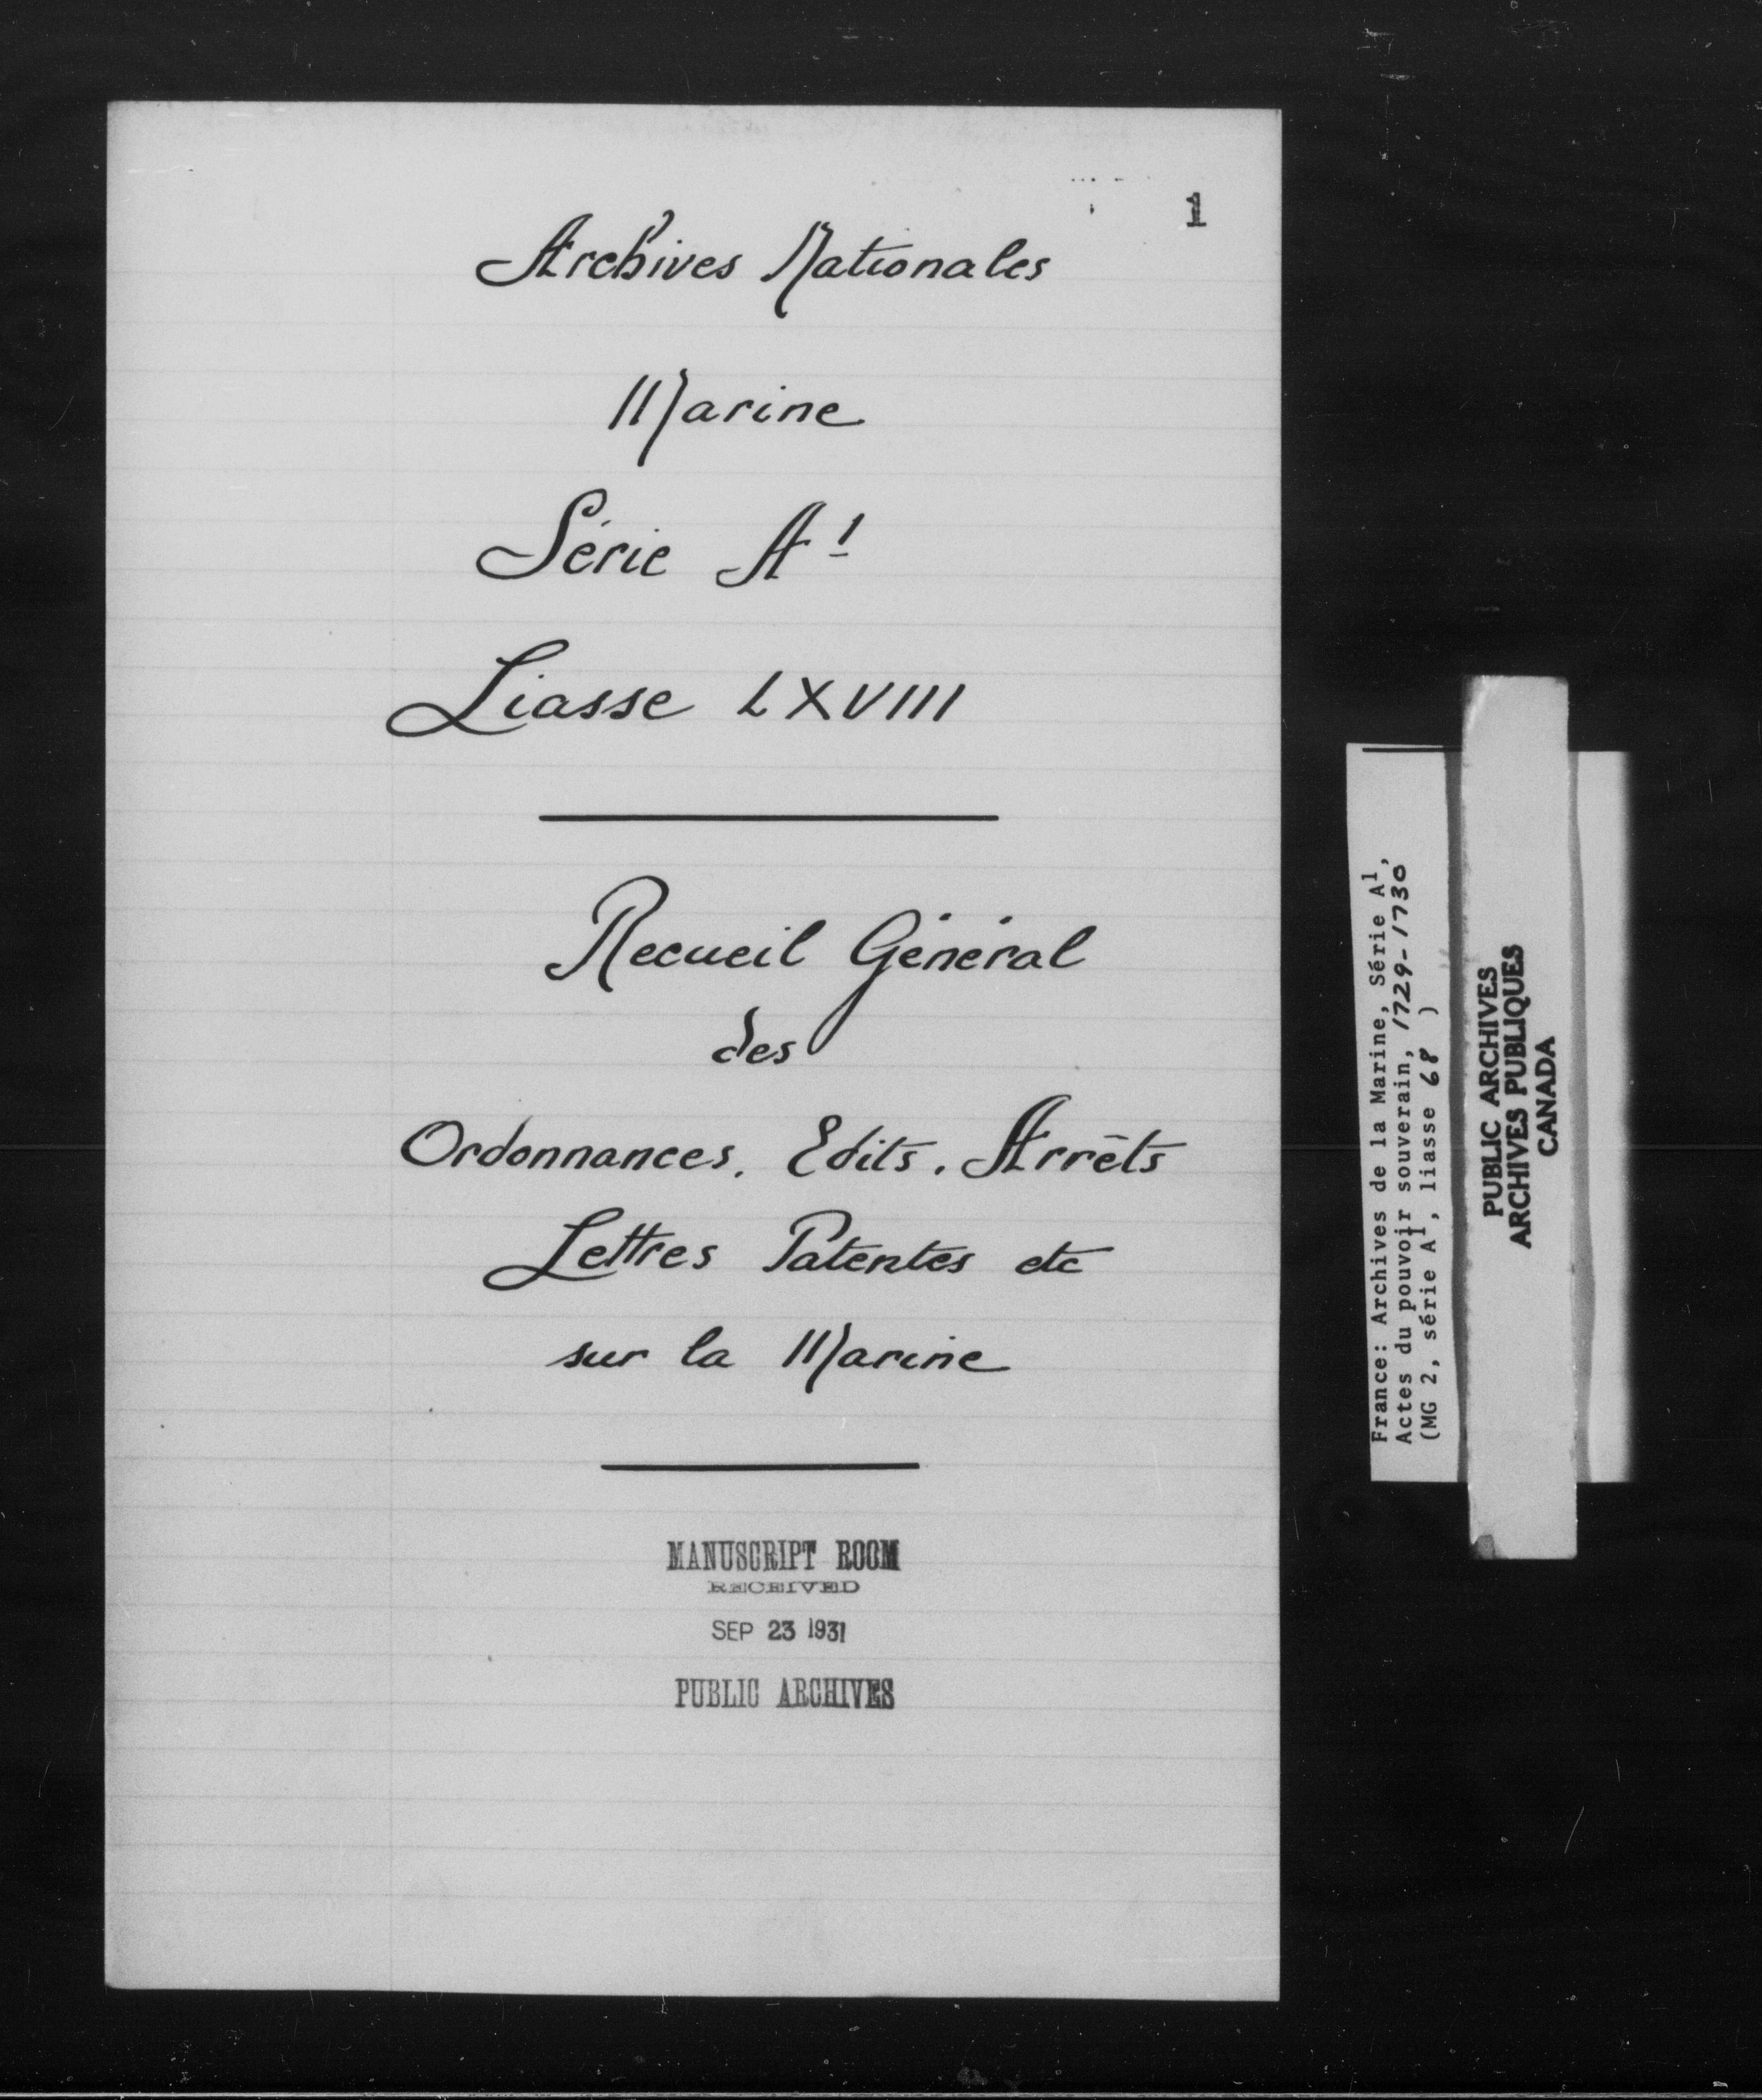 1
Archives Nationales
Marine
Série A¹
Liasse LXVIII
Recueil Général
des
Ordonnances. Edits. Arrêts
Lettres Patentes etc
sur la Marine
MANUSCRIPT ROOM
RECEIVED
SEP 23 1931
PUBLIC ARCHIVES
France: Archives de la Marine, Série A¹,
Actes du pouvoir souverain, 1729-1730
(MG 2, série A¹, liasse 68 )
PUBLIC ARCHIVES
ARCHIVES PUBLIQUES
CANADA